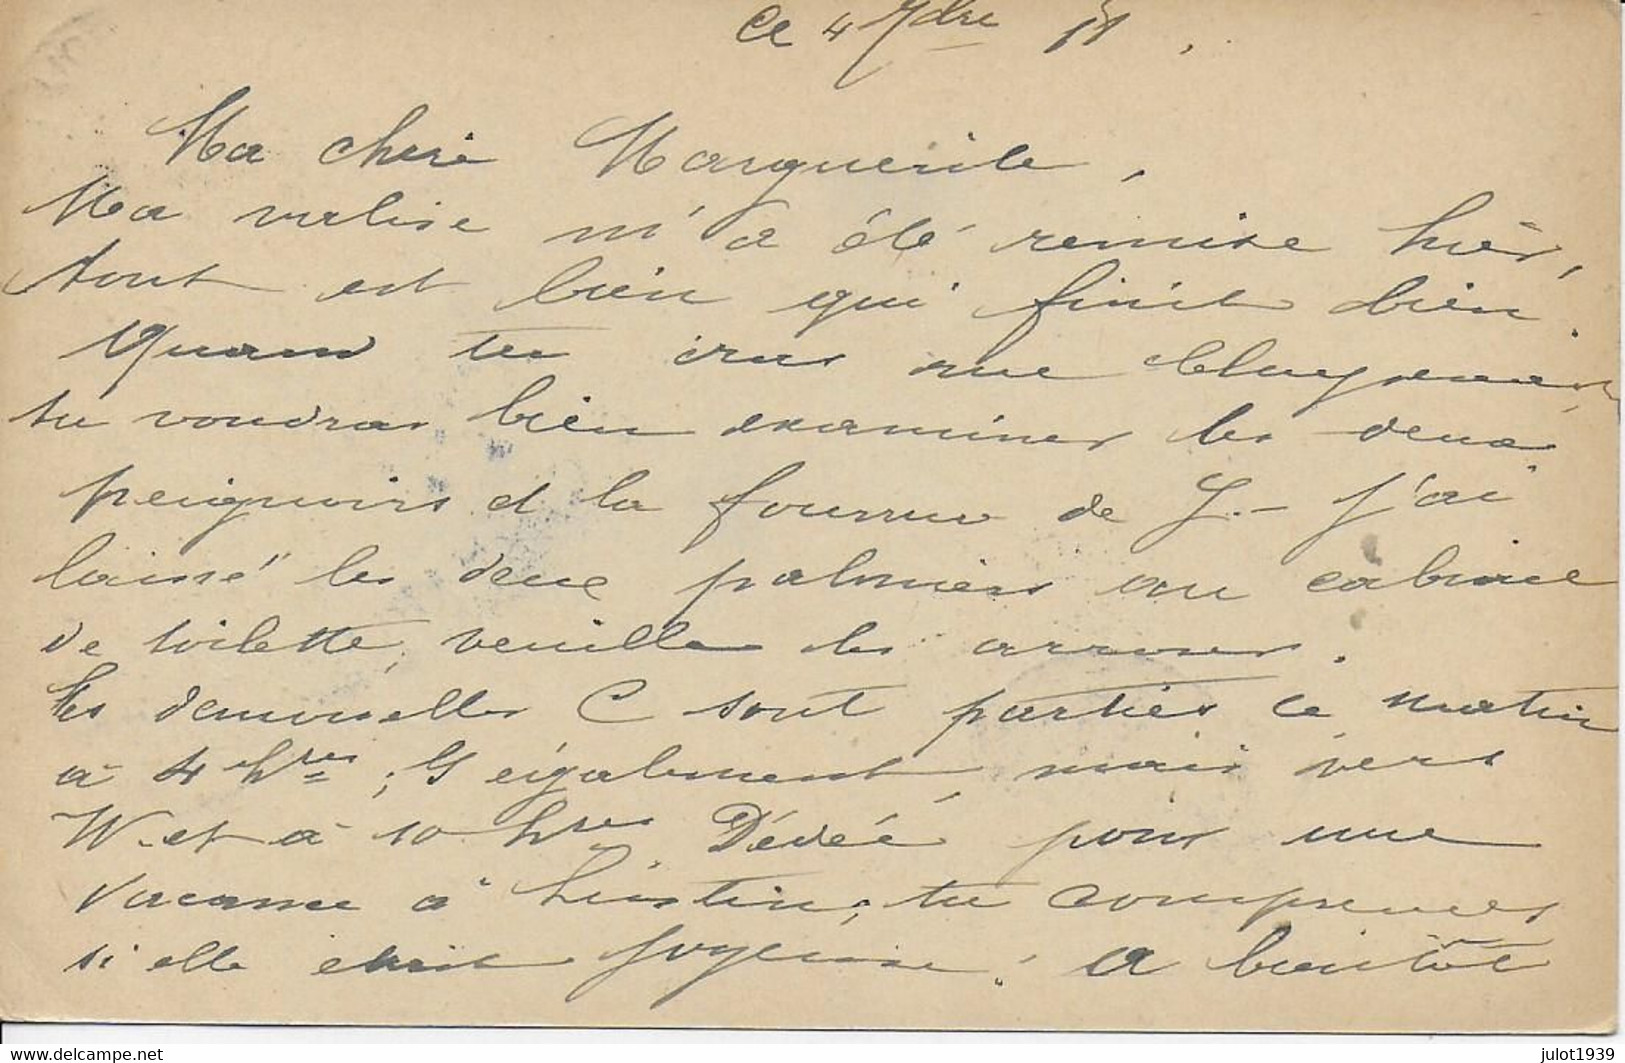 ce 4 7bre 11.
Ma chère Marguerite,
Ma valise m'a été remise hier,
tout est bien qui finit bien.
Quand tu iras rue Cluysenaar,
tu voudras bien examiner les deux
peignoirs et la fourrure de J. - J'ai
laissé les deux palmiers au cabinet
de toilette, veuillez les arroser.
Les demoiselles C sont parties ce matin
à 4 hres; G également, mais vers
W. et à 10 hres Dédée pour une
vacance à Lustin; tu comprends
si elle était joyeuse! A bientôt
www.delcampe.net
julot1939